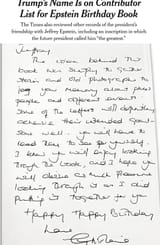 Trump's Name Is on Contributor
List for Epstein Birthday Book
The Times also reviewed other records of the president's
friendship with Jeffrey Epstein, including an inscription in which
the future president called him "the greatest."
Jeffrey,
The idea behind the
book was simply to gather
and old photographs to
jog your memory about
people and different events
Some of the letters will definitely
achieve their intended goal-
some well... you will have to
read them to see for yourself.
I know you will enjoy looking
through the book, and I hope you
will derive as much pleasure
looking through it as I did
putting it together for you
Happy Happy Happy Birthday
Love
Ghislaine